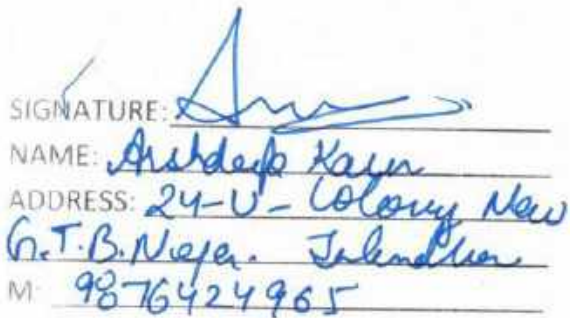 SIGNATURE:
NAME: Arshdeep Kaur
ADDRESS: 24-U- Colony New
G.T.B. Nager. Jalandhar
M 9876424965